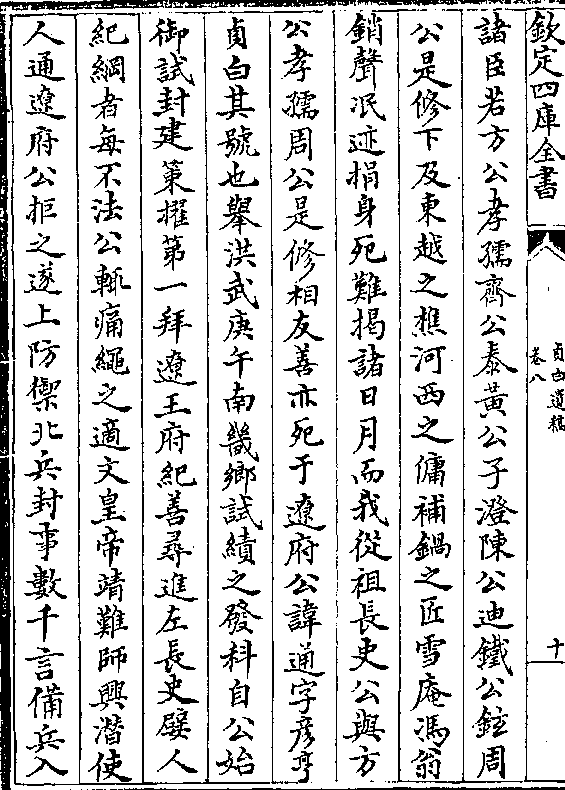 欽定四庫全書
貞白遺稿
卷八
十
諸臣若方公孝孺齊公泰黃公子澄陳公迪鐵公鉉周
公是修下及東越之樵河西之傭補鍋之匠雪庵馮翁
銷聲泯迹捐身死難揭諸日月而我從祖長史公與方
公孝孺周公是修相友善亦死于遼府公諱通字彦亨
貞白其號也舉洪武庚午南畿鄉試績之發科自公始
御試封建策擢第一拜遼王府紀善尋進左長史嬖人
紀綱者每不法公輙痛繩之適文皇帝靖難師興潛使
人通遼府公拒之遂上防禦北兵封事數千言備兵入